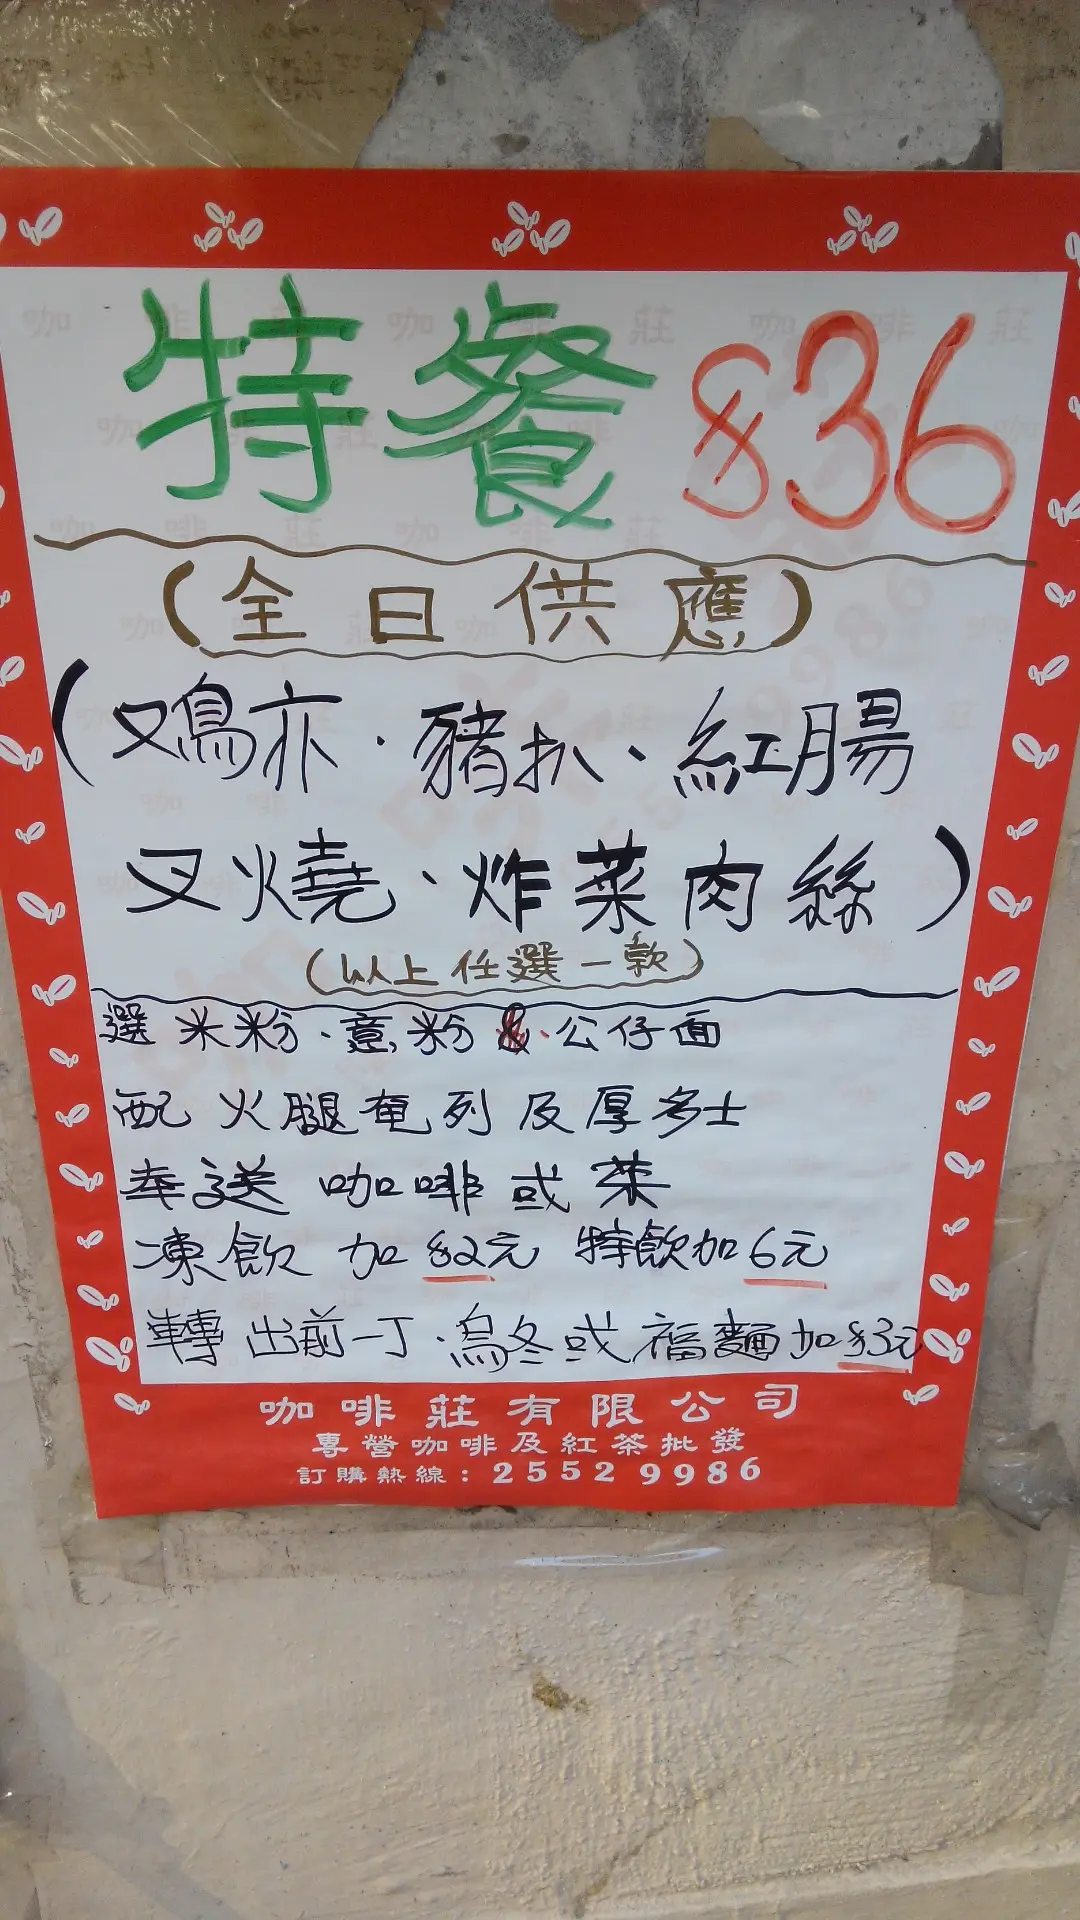 特餐 $36
(全日供應)
(鳮亦·豬扒、紅腸
叉燒、炸菜肉絲)
(以上任選一款)
選米粉·意粉·公仔面
配火腿奄列及厚多士
奉送咖啡或茶
凍飲加$2元 特飲加6元
轉出前一丁·烏冬或福麵加$3元
咖啡莊有限公司
專營咖啡及紅茶批發
訂購熱線:25529986